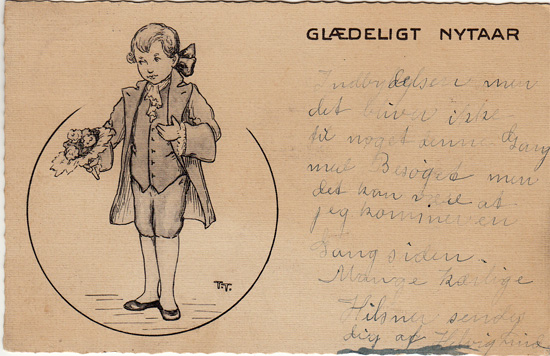 GLÆDELIGT NYTAAR
Indbydelsen, men
det bliver ikke
til noget denne Gang
med Besøget men
det kan være at
jeg kommer en
Gang siden.
Mange kærlige
Hilsner sendes
dig af
T.T.